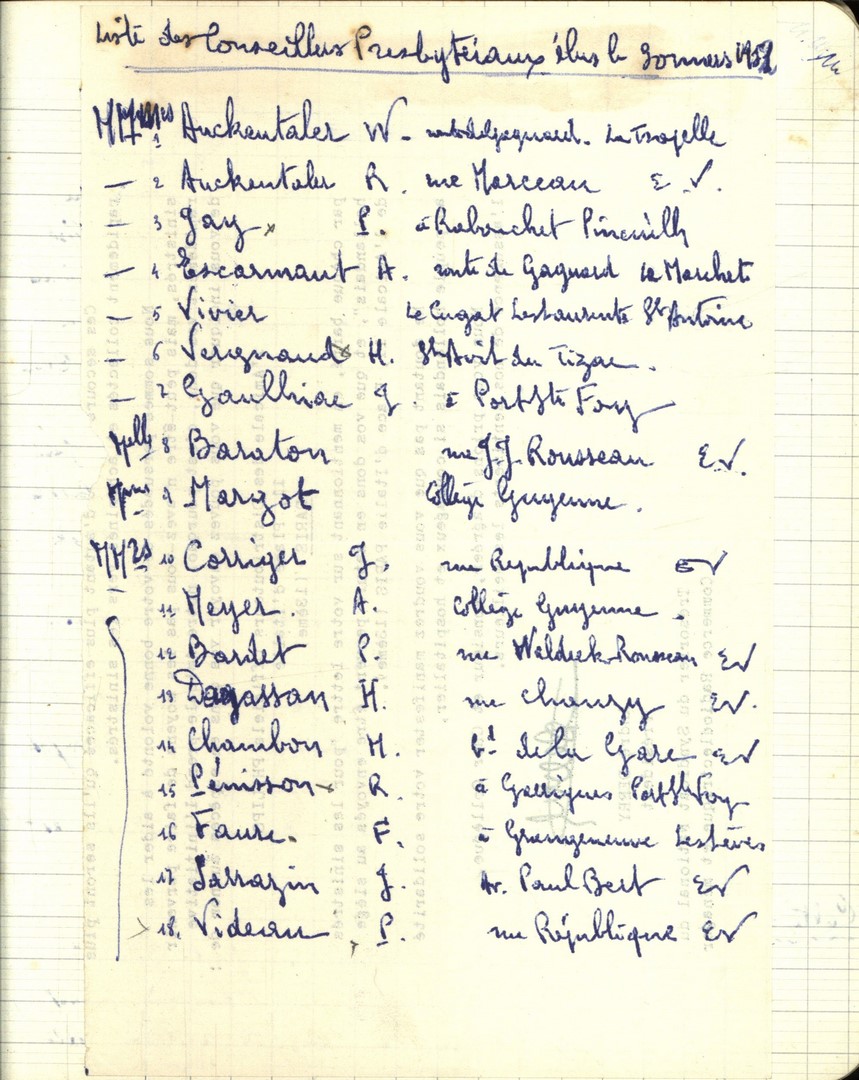 Liste des Conseillers Presbytéraux élus le 30 mars 1952
MM 1 Auckentaler W. La Trapelle
— 2 Auckentaler R. rue Marceau E.V.
— 3 Gay x P. à Rabouchet Pineuilh
— 4 Escarmant A. route de Gagnard
— 5 Vivier Le Cugat St Antoine
— 6 Vergnaud x H. St Avit du Tizac.
— 7 Gaulhiac J à Port Ste Foy
Melle 8 Baraton rue J.J. Rousseau E.V.
Mme 9 Margot Collège Guyenne.
MM rs 10 Corriger J. rue République EV
11 Meyer. A. Collège Guyenne.
12 Bardet P. rue Waldeck-Rousseau EV
13 Dagassan H. rue Chanzy EV.
14 Chambon M. Bd de la Gare EV
15 Pénisson x R. à Port Ste Foy
16 Faure. F. à Grangeneuve Les Lèves
17 Sarrazin J. Av. Paul Bert EV
18. Videau P. rue République EV